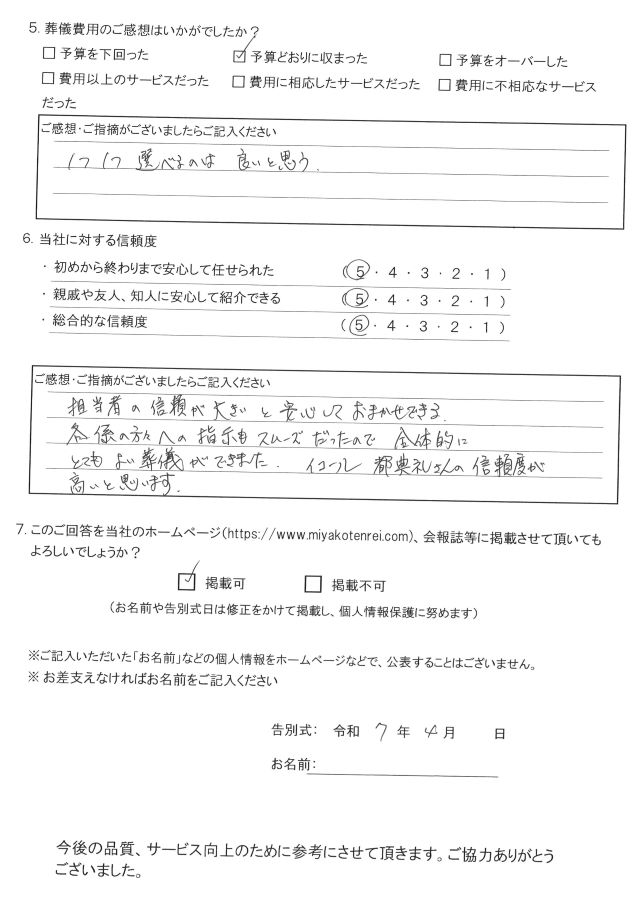 5. 葬儀費用のご感想はいかがでしたか？
□ 予算を下回った ☑ 予算どおりに収まった □ 予算をオーバーした
□ 費用以上のサービスだった □ 費用に相応したサービスだった □ 費用に不相応なサービス
だった
ご感想・ご指摘がございましたらご記入ください
1つ1つ 選べるのは 良いと思う.
6. 当社に対する信頼度
・ 初めから終わりまで安心して任せられた （⑤・4・3・2・1）
・ 親戚や友人、知人に安心して紹介できる （⑤・4・3・2・1）
・ 総合的な信頼度 （⑤・4・3・2・1）
ご感想・ご指摘がございましたらご記入ください
担当者の信頼が大きいと安心しておまかせできる.
各係の方々への指示もスムーズだったので 全体的に
とてもよい葬儀ができました. イコール 都典礼さんの信頼度が
高いと思います.
7. このご回答を当社のホームページ(https://www.miyakotenrei.com)、会報誌等に掲載させて頂いても
よろしいでしょうか？
☑ 掲載可 □ 掲載不可
（お名前や告別式日は修正をかけて掲載し、個人情報保護に努めます）
※ご記入いただいた「お名前」などの個人情報をホームページなどで、公表することはございません。
※ お差支えなければお名前をご記入ください
告別式： 令和 7 年 4 月 日
お名前：
今後の品質、サービス向上のために参考にさせて頂きます。ご協力ありがとう
ございました。